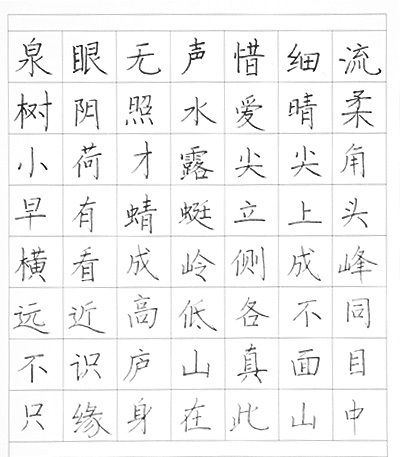 泉眼无声惜细流
树阴照水爱晴柔
小荷才露尖尖角
早有蜻蜓立上头
横看成岭侧成峰
远近高低各不同
不识庐山真面目
只缘身在此山中